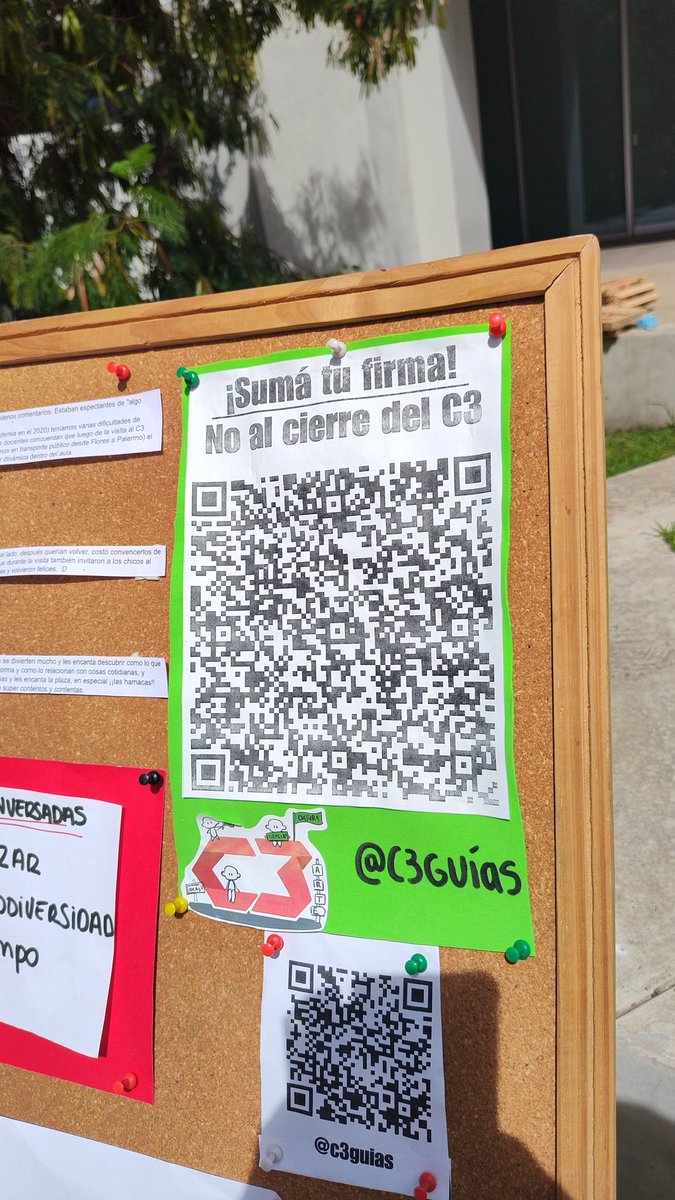 ¡Sumá tu firma!
No al cierre del C3
uenos comentarios. Estaban expectantes de "algo
demia en el 2020) teníamos varias dificultades de
s docentes concuerdan que luego de la visita al C3
mos en transporte público desde Flores a Palermo) el
r dinámica dentro del aula
al lado, después querían volver, costó convencerlos de
ue durante la visita también invitaron a los chicos al
es y volvieron felices. :D
e se divierten mucho y les encanta descubrir como lo que
orma y como lo relacionan con cosas cotidianas, y
ias y les encanta la plaza, en especial ¡¡las hamacas!!
super contentos y contentas.
NVERSADAS
ZAR
ODIVERSIDAD
mpo
CULTURA
CIENCIA
ARTE
@C3GUÍas
@c3guias